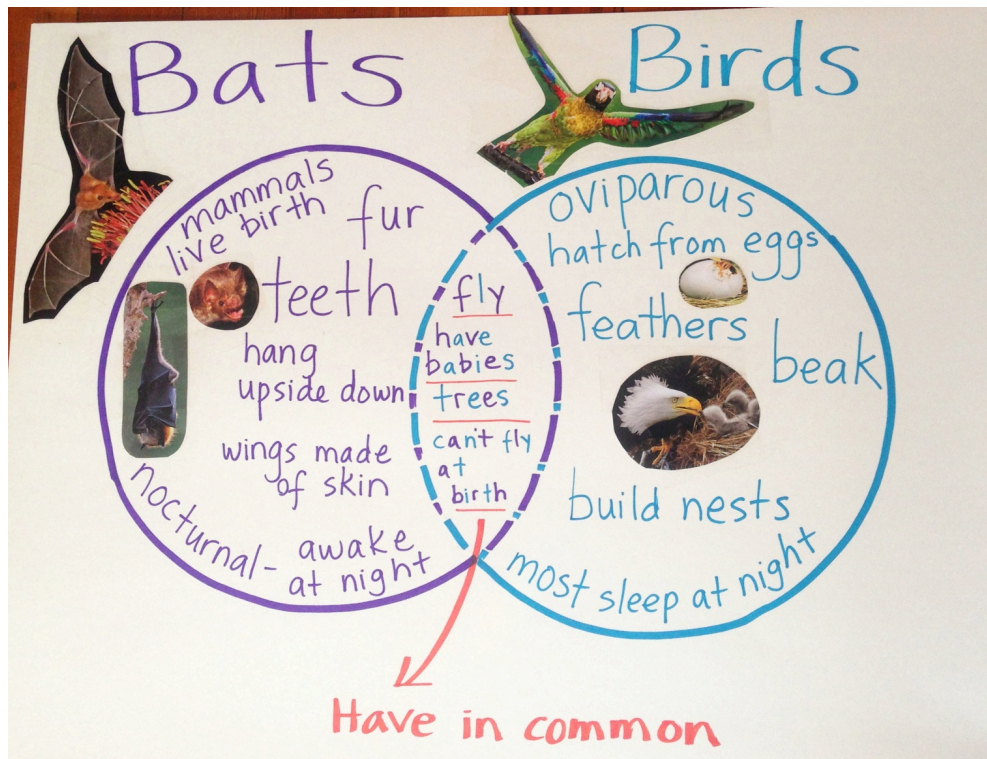 Bats
Birds
mammals
live birth
fur
teeth
hang
upside down
wings made
of skin
nocturnal - awake
at night
fly
have
babies
trees
can't fly
at
birth
oviparous
hatch from eggs
feathers
beak
build nests
most sleep at night
Have in common